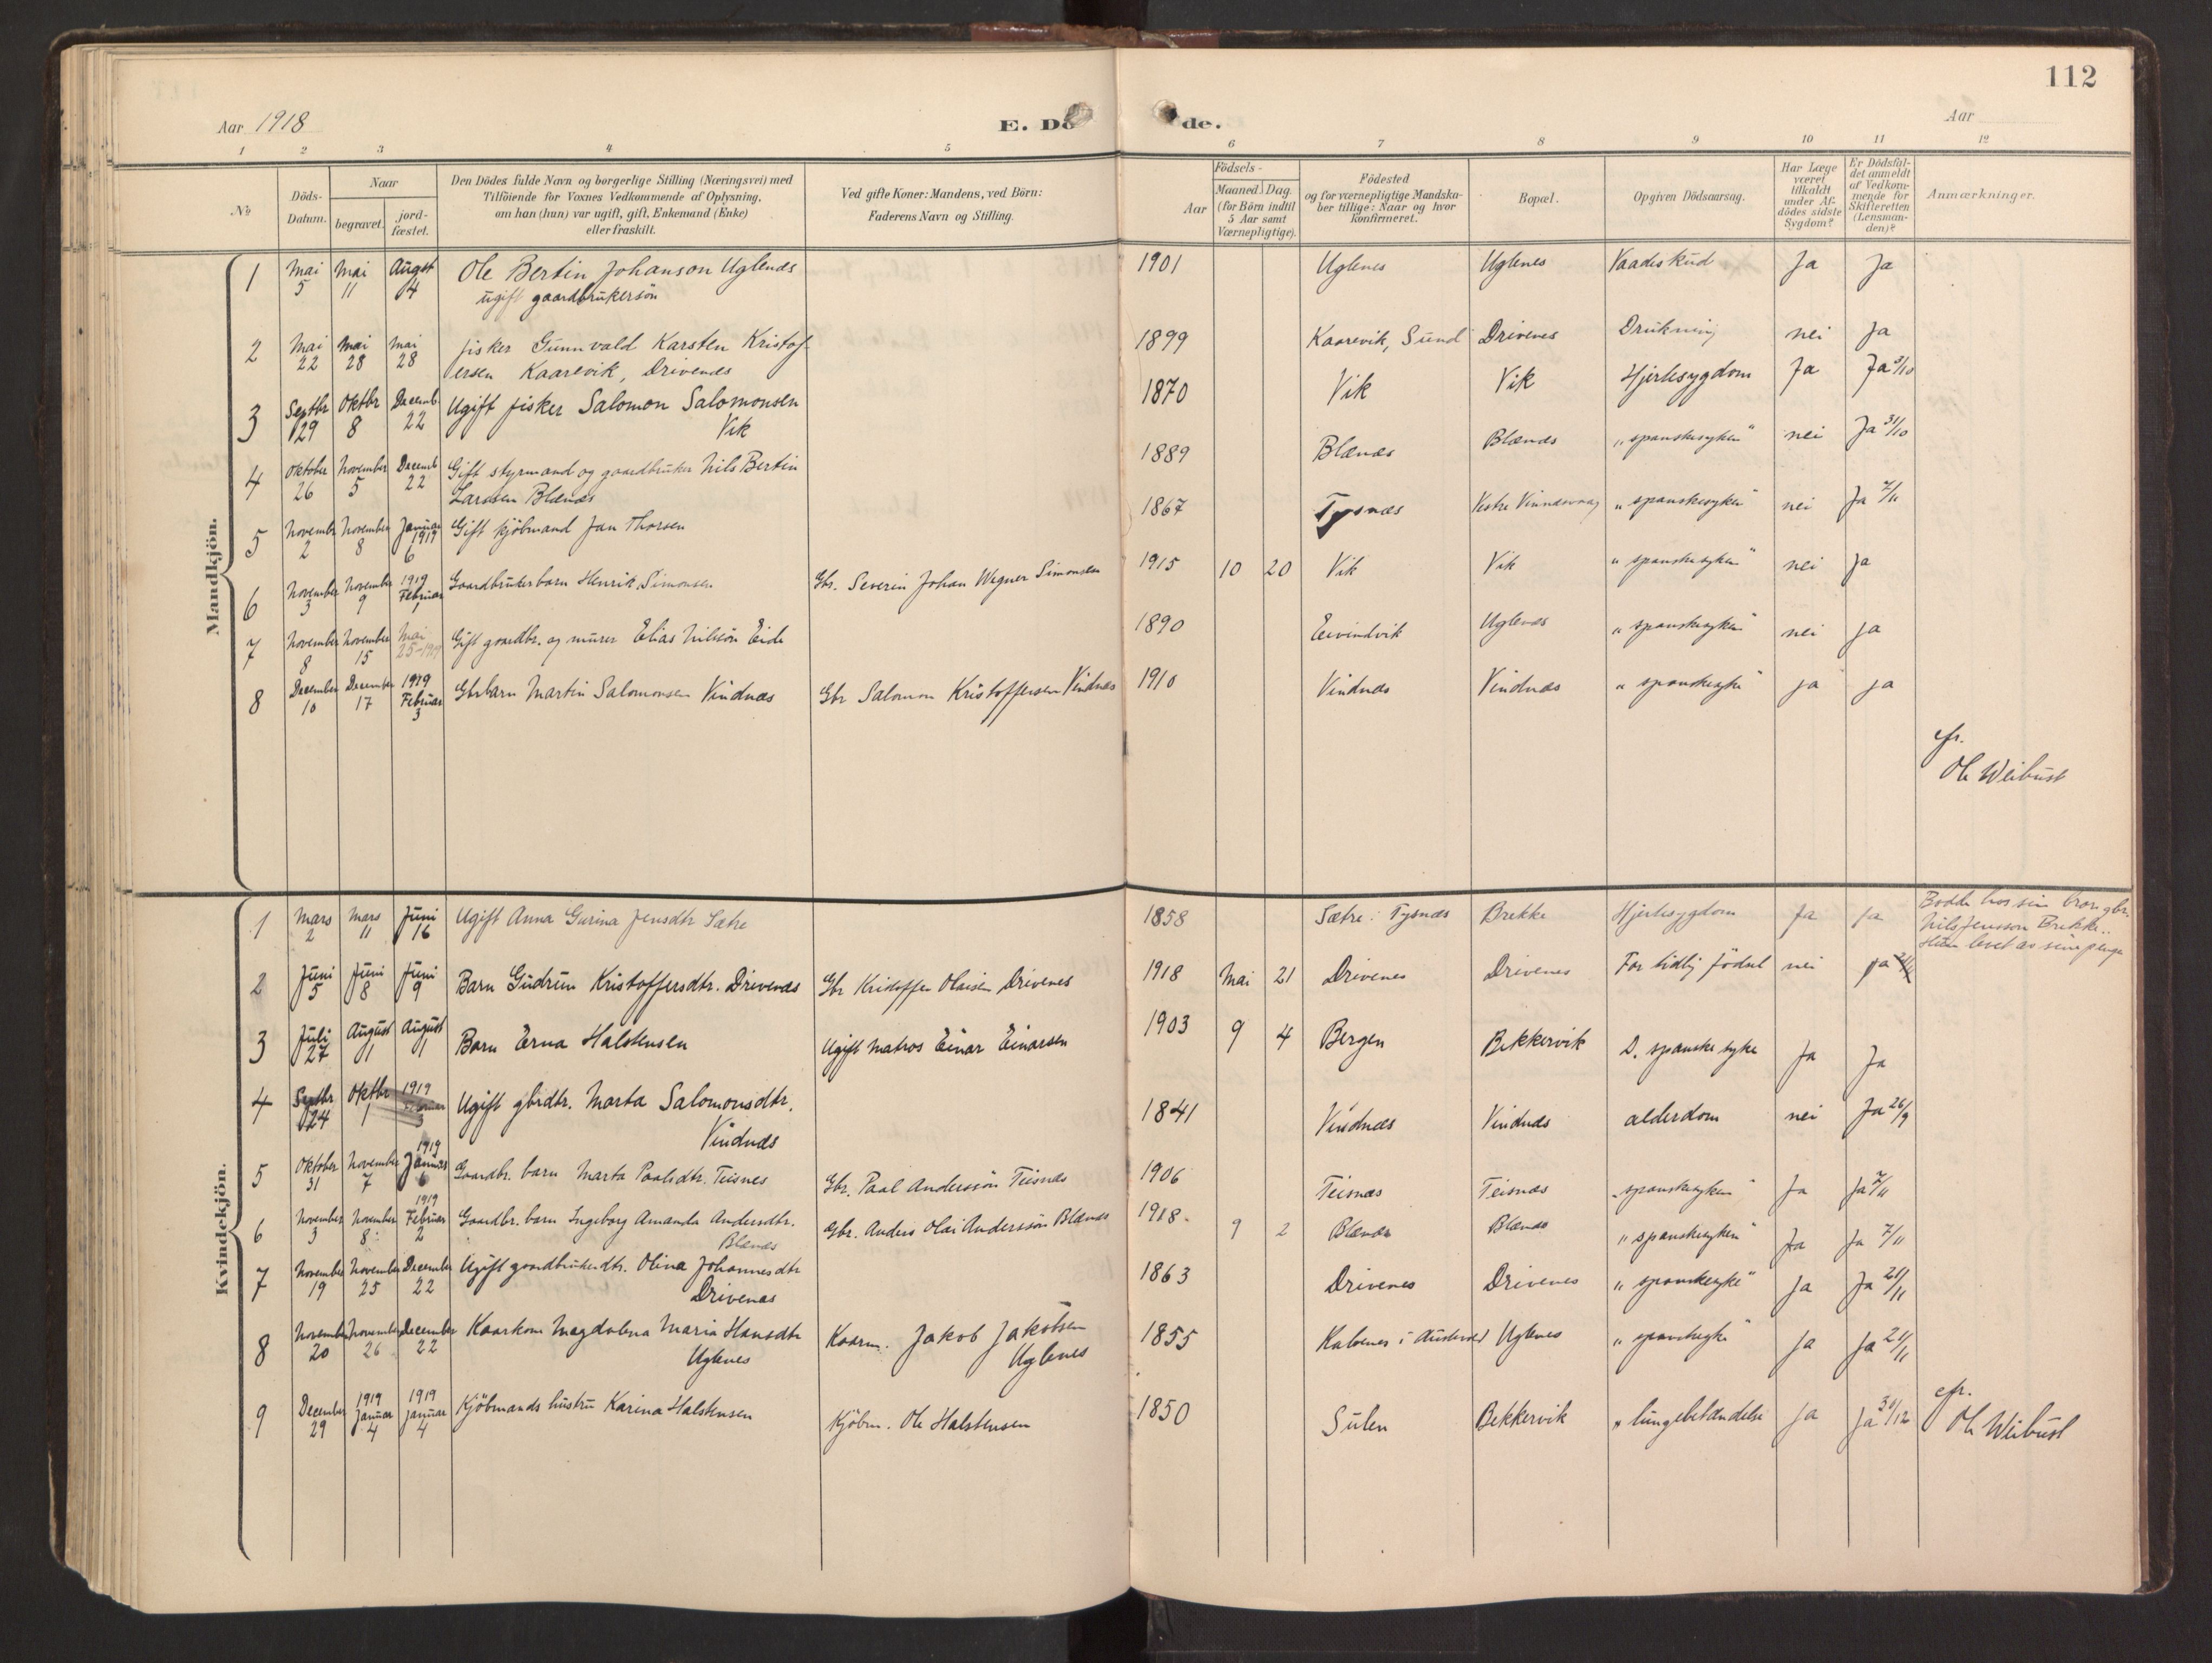 112
Aar 1918
E. Dö de.
Aar
1 2 3 4 5 6 7 8 9 10 11 12
No
Döds-Datum.
Naar
begravet.
jord-fæstet.
Den Dödes fulde Navn og borgerlige Stilling (Næringsvei) med
Tilföiende for Voxnes Vedkommende af Oplysning,
om han (hun) var ugift, gift, Enkemand (Enke)
eller fraskilt.
Ved gifte Koner: Mandens, ved Börn:
Faderens Navn og Stilling.
Födsels-
Aar
Maaned. Dag.
(for Börn indtil
5 Aar samt
Værnepligtige).
Födested
og for værnepligtige Mandska-
ber tillige: Naar og hvor
konfirmeret.
Bopæl.
Opgiven Dödsaarsag.
Har Læge
været
tilkaldt
under Af-
dödes sidste
Sygdom?
Er Dödsfal-
det anmeldt
af Vedkom-
mende for
Skifteretten
(Lensman-
den)?
Anmærkninger.
Mandkjön.
1 Mai 5 Mai 11 August 4 Ole Bertin Johanson Uglenæs 1901 Uglenes Uglenes Vaadeskud Ja Ja
ugift gaardbrukersön
2 Mai 22 Mai 28 Mai 28 fisker Gunnvald Karsten Kristof- 1899 Kaarevik, Sund Drivenes Drukning nei Ja
ersen Kaarevik, Drivenes
3 Septbr 29 Oktbr 8 Decemb 22 Ugift fisker Salomon Salomonsen 1870 Vik Vik Hjertesygdom Ja Ja 3/10
Vik
4 Oktober 26 November 5 Decemb 22 Gift styrmand og gaardbruker Nils Bertin 1889 Blænæs Blænæs "spanskesyken" nei Ja 31/10
Larssen Blænæs
5 November 2 November 8 Januar 1919 6 Gift kjöbmand Jan Thorsen 1867 Tysnæs Vestre "spanskesyken" nei Ja 7/11
6 November 3 November 9 1919 Februar 1 Gaardbrukerbarn Henrik Simonsen Gbr. Severin Johan Wegner Simonsen 1915 10 20 Vik Vik "spanskesyken" nei ja
7 November 8 November 15 Mai 25-1919 Gift gaardbr. og murer Elias Nilsön Eide 1890 Eivindvik Uglenæs "spanskesyken" nei ja
8 December 10 December 17 1919 Februar 3 Gbrbarn Martin Salomonsen Vindnæs Gbr Salomon Kristoffersen Vindnæs 1910 Vindnæs Vindnæs "spanskesyke" ja ja
cfr.
Ole Weibust
Kvindekjön.
1 Mars 2 Mars 11 Juni 16 Ugift Anna Gurina Jensdtr Sætre 1858 Sætre: Tysnæs Brekke Hjertesygdom Ja ja Bodde hos sin bror gbr.
Nils Jensson Brekke.
Hun levet av sine penge
2 Juni 5 Juni 8 Juni 9 Barn Gudrun Kristoffersdtr. Drivenæs Gbr Kristoffer Olaisen Drivenes 1918 Mai 21 Drivenes Drivenes For tidlig födsel nei ja
3 Juli 27 August 1 August 1 Barn Erna Halstensen Ugift matros Einar Einarsen 1903 9 4 Bergen Bekkervik D. spanske syke Ja Ja
4 Septbr 24 Oktbr 1 1919 Februar 3 Ugift gbrdtr. Marta Salomonsdtr. 1841 Vindnæs Vindnæs alderdom nei Ja 26/9
Vindnæs
5 Oktober 31 November 7 1919 Januar 6 Gaardbr. barn Marta Paalsdtr. Teisnes Gbr. Paal Anderssön Teisnæs 1906 Teisnæs Teisnæs "spanskesyken" Ja Ja 7/11
6 November 3 November 8 1919 Februar 2 Gaardbr. barn Ingeborg Amanda Andersdtr. Gbr. Anders Olai Anderssön Blænæs 1918 9 2 Blænæs Blænæs "spanskesyken" Ja Ja 7/11
Blænæs
7 November 19 November 25 December 22 Ugift gaardbrukerdtr. Olina Johannesdtr 1863 Drivenes Drivenes "spanskesyke" Ja Ja 21/11
Drivenæs
8 November 20 November 26 December 22 Kaarkone Magdalena Maria Hansdtr Kaarm. Jakob Jakobsen 1855 Kalvenes i Austevoll Uglenes "spanskesyke" Ja Ja 21/11
Uglenes Uglenes
9 December 29 1919 Januar 4 1919 Januar 4 Kjöbmands hustru Karina Halstensen Kjöbm. Ole Halstensen 1850 Sulen Bekkervik "lungebetændelse Ja Ja 30/12
cfr.
Ole Weibust